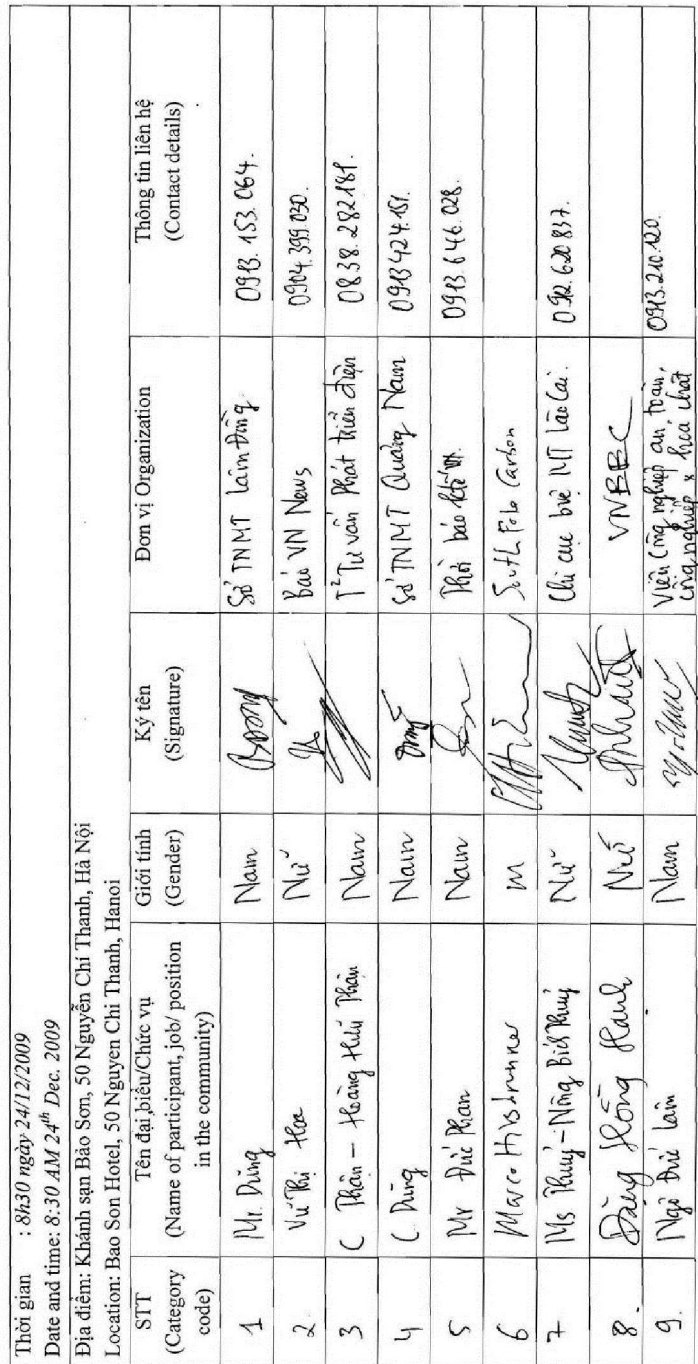 Thời gian : 8h30 ngày 24/12/2009
Date and time: 8:30 AM 24th Dec. 2009
Địa điểm: Khánh sạn Bảo Sơn, 50 Nguyễn Chí Thanh, Hà Nội
Location: Bao Son Hotel, 50 Nguyen Chi Thanh, Hanoi
STT (Category code) Tên đại biểu/Chức vụ (Name of participant, job/ position in the community) Giới tính (Gender) Ký tên (Signature) Đơn vị Organization Thông tin liên hệ (Contact details)
1 Mr. Dũng Nam Sở TNMT Lâm Đồng 0913.153.064.
2. Vũ Thị Hoa Nữ Báo VN News 0904.399.030.
3 C Thận - Hoàng Hữu Thận Nam T² Tư vấn Phát triển điện 0838.282181.
4 C. Dũng Nam Sở TNMT Quảng Nam 0913424.151.
5 Mr Đức Phan Nam Thời báo Ktế VN. 0913.646.028.
6 Marco M South Pole Carbon
7 Ms Thuý - Nông Bích Thuý Nữ Chi cục bvệ MT Lào Cai. 0912.620.837.
8. Đặng Hồng Hạnh Nữ VNEEC
9. Ngô Đức Lâm Nam Viện Công nghiệp an toàn, công nghiệp & hoá chất 0913.210.120.